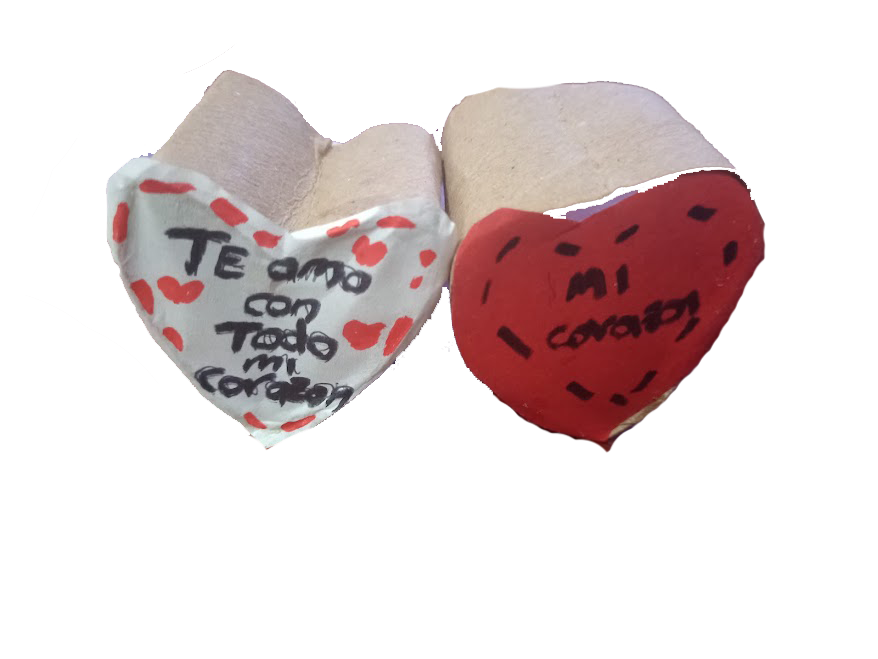 TE amo
con
Todo
mi
corazon
MI
corazon